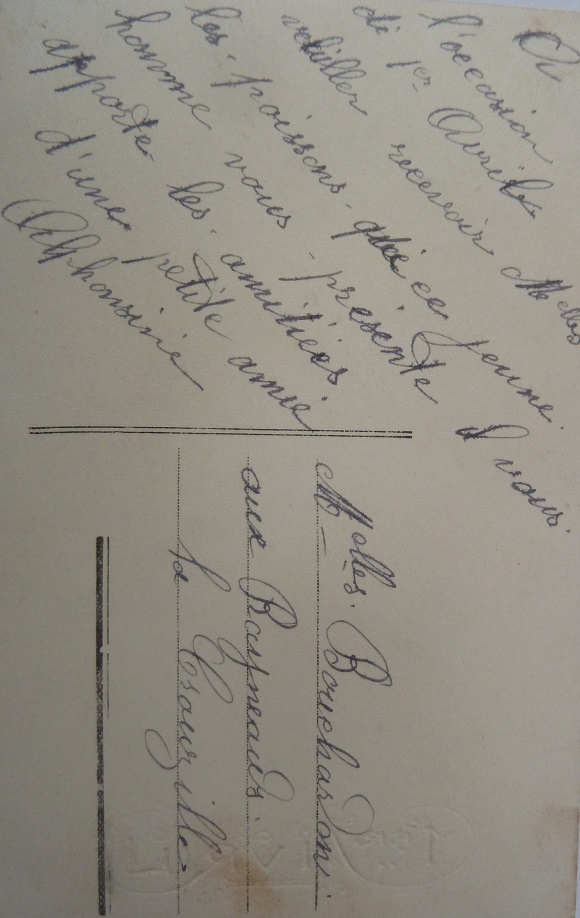 A
l'occasion
di 1er Avril
veuiller recevoir Melles
les poissons que ce jeune
homme vous présente à vous
apporte les amitiées
d'une petite amie
Alphonsine
Melles. Bouchardon
aux Rayneauds.
la Crouzille